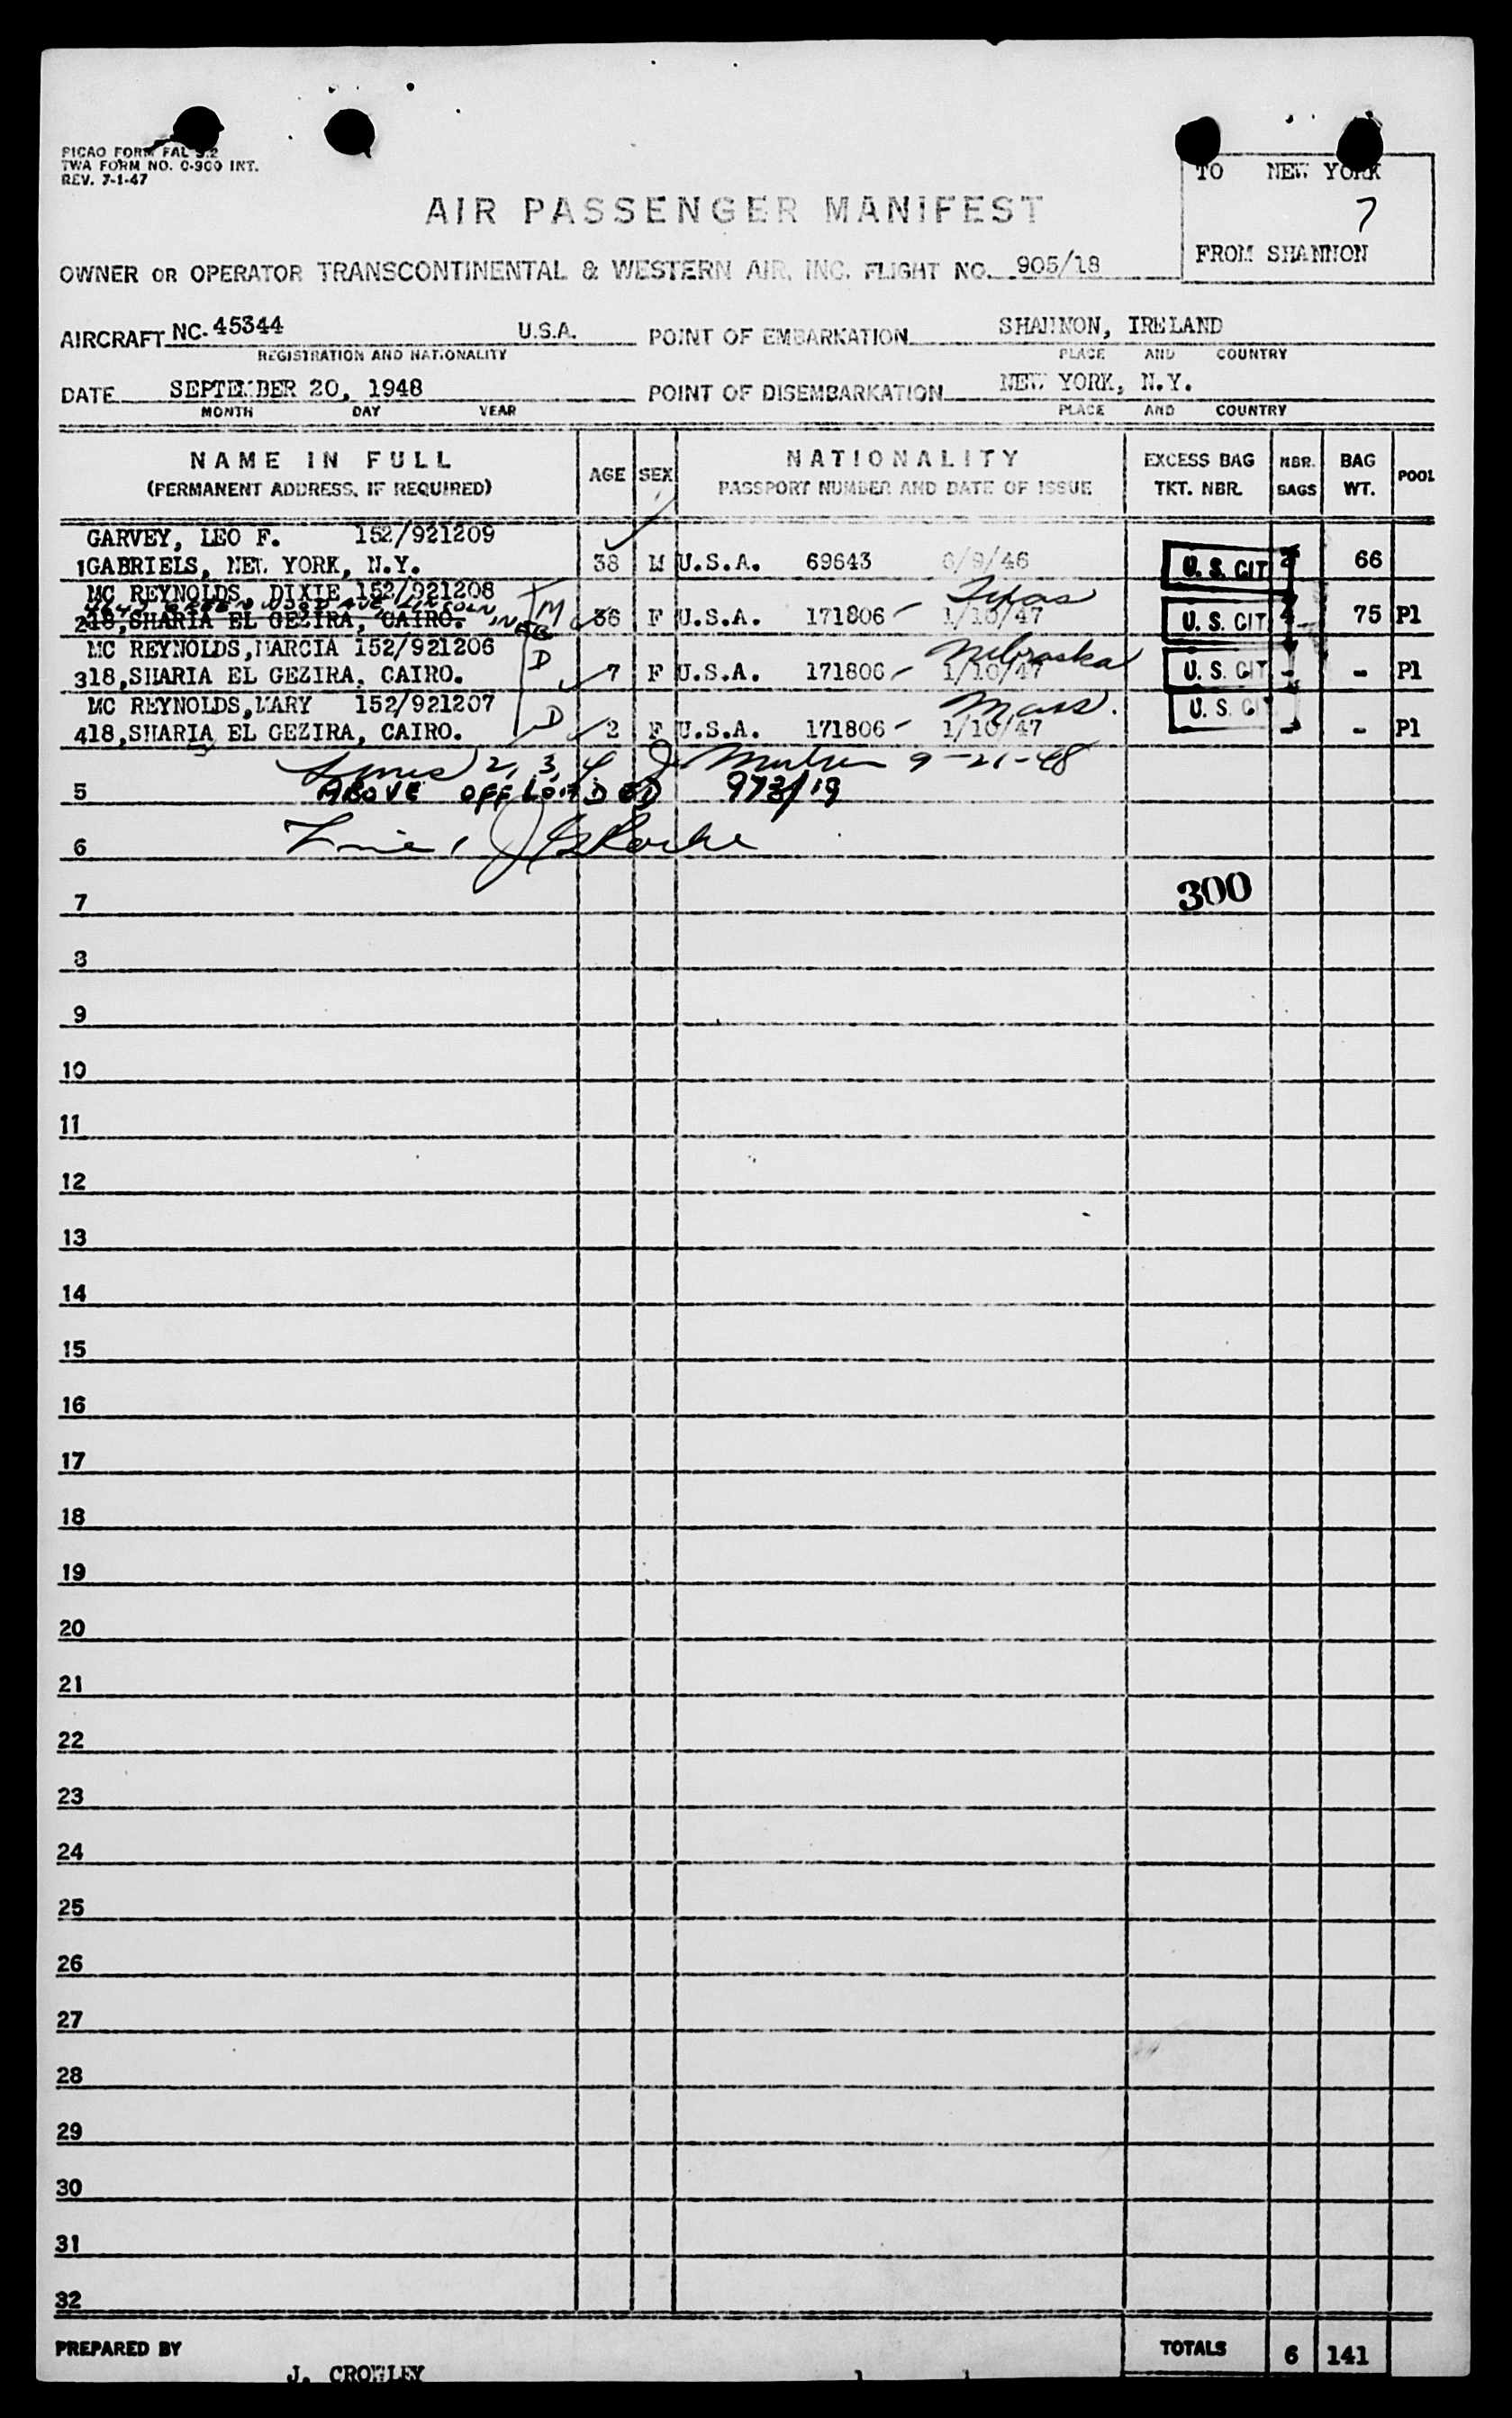 PICAO FORM FAL 3.2
TWA FORM NO. C-300 INT.
REV. 7-1-47
TO NEW YORK
7
FROM SHANNON
AIR PASSENGER MANIFEST
OWNER OR OPERATOR TRANSCONTINENTAL & WESTERN AIR, INC. FLIGHT NO. 905/18
AIRCRAFT NC. 45344 U.S.A. POINT OF EMBARKATION SHANNON, IRELAND
REGISTRATION AND NATIONALITY PLACE AND COUNTRY
DATE SEPTEMBER 20, 1948 POINT OF DISEMBARKATION NEW YORK, N.Y.
MONTH DAY YEAR PLACE AND COUNTRY
NAME IN FULL AGE SEX NATIONALITY EXCESS BAG NBR. BAG POOL
(PERMANENT ADDRESS, IF REQUIRED) PASSPORT NUMBER AND DATE OF ISSUE TKT. NBR. BAGS WT.
GARVEY, LEO F. 152/921209
1 GABRIELS, NEW YORK, N.Y. 38 M U.S.A. 69643 /9/46 U.S. CIT 66
MC REYNOLDS, DIXIE 152/921208 M Texas
GREENWOOD AVE LINCOLN NEB
2 18, SHARIA EL GEZIRA, CAIRO. 36 F U.S.A. 171806 - 1/10/47 U.S. CIT 4 75 P1
MC REYNOLDS, MARCIA 152/921206 D Nebraska
3 18, SHARIA EL GEZIRA, CAIRO. 7 F U.S.A. 171806 - 1/10/47 U.S. CIT - - P1
MC REYNOLDS, MARY 152/921207 D Mass.
4 18, SHARIA EL GEZIRA, CAIRO. 2 F U.S.A. 171806 - 1/10/47 U.S. CIT - - P1
Lines 2, 3, 4 J. 9-21-48
5 ABOVE OFF LOADED 973/19
6 Line 1
7 300
8
9
10
11
12
13
14
15
16
17
18
19
20
21
22
23
24
25
26
27
28
29
30
31
32
PREPARED BY TOTALS 6 141
J. CROWLEY